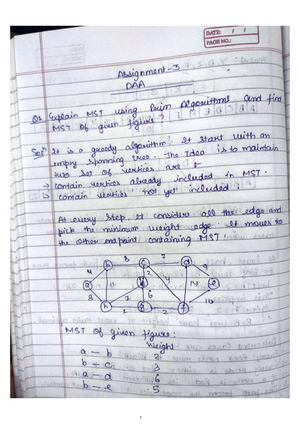 DATE: / /
PAGE NO.:
Assignment-3
DAA
Q1 Explain MST using Prim Algorithms and find
MST of given figure?
Sol: It is a greedy algorithm. It start with an
empty spanning tree. The idea is to maintain
two set of vertices are :-
→ Contain vertices already included in MST.
→ contain vertices not yet included.
At every step, it consider all the edge and
pick the minimum weight edge. It moves to
the other endpoint containing MST.
MST of given figure:
Weight
a - b 2
b - c 3
a - d 6
b - e 5